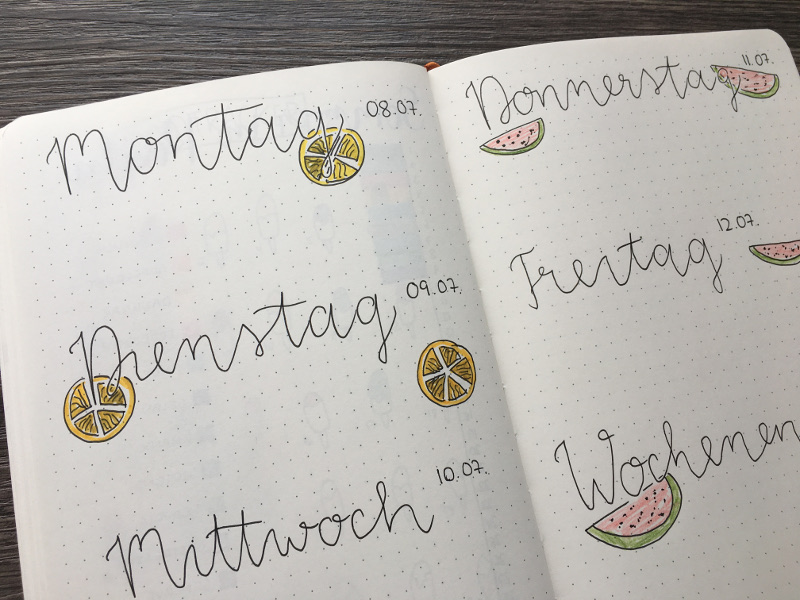 Montag 08.07.
Dienstag 09.07.
Mittwoch 10.07.
Donnerstag 11.07.
Freitag 12.07.
Wochenen